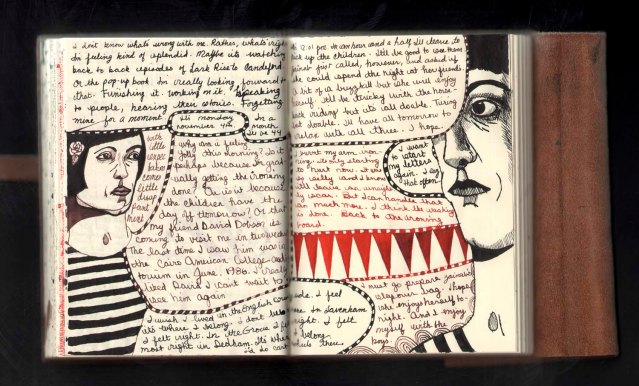 I don't know what's wrong with me. Rather, what's right
I'm feeling kind of splendid. Maybe it's watching
back to back episodes of Lark Rise to Candleford
Or the pop-up book I'm really looking forward to
that. Furnishing it. working on it. Speaking
to people, hearing their stories. Forgetting
mine for a moment.
It's monday
november 4th.
In a
month
I'll be 44
with
little
expec
tation
comes
little
disap
point
ment
why am I feeling
jolly this morning? Is it
perhaps because I'm grad
ually getting the ironing
done? Or is it because
the children have the
day off tomorrow? Or that
my friend David Dobson is
coming to visit me in two weeks
The last time I saw him was in
the Cairo American College audi
torium in June. 1986. I really
liked David I can't wait to
see him again
I wish I lived in the English coun
it's where I belong. I don't
I felt right. In the Grove I fe
most right in Dedham. It's whe
I'd do cart
12:01 pm. In an hour and a half I'll leave to
pick up the children. It'll be good to see them
called, however, and asked if
she could spend the night at her friends
a bit of a buzzkill but she will enjoy
herself. It'll be tricky with the horse-
back riding but it's all doable. Turing
but doable. I'll have all tomorrow to
relax with all three. I hope.
I burnt my arm iron
ing. It's only starting
to hurt now. It was
so silly and I know
it'll leave an unsight
ly scar. But I can handle that
an much more. I think the washing
is done. Back to the ironing
board.
I want
to relax
my letters
again. I say
that often.
I feel
in Lavenham
right. I felt
I belong
I must go prepare
sleepover bag. I hope
she enjoys herself to-
night. And I enjoy
myself with the
boys.